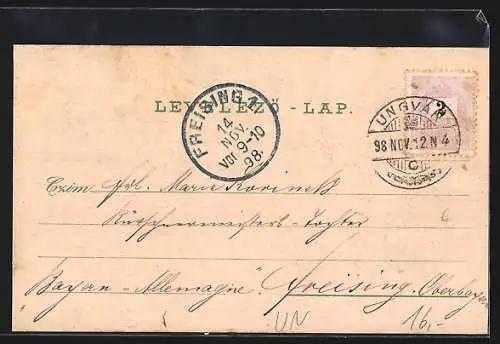 LEVELEZŐ - LAP.
FREISING
14
NOV.
Vor 9-10
98.
2
UNGVÁR
98 NOV. 12. N 4
C
Czím: Frl. Marie Korinek
Bayern - Allemagne. Freising, Oberbayern
UN
16,-